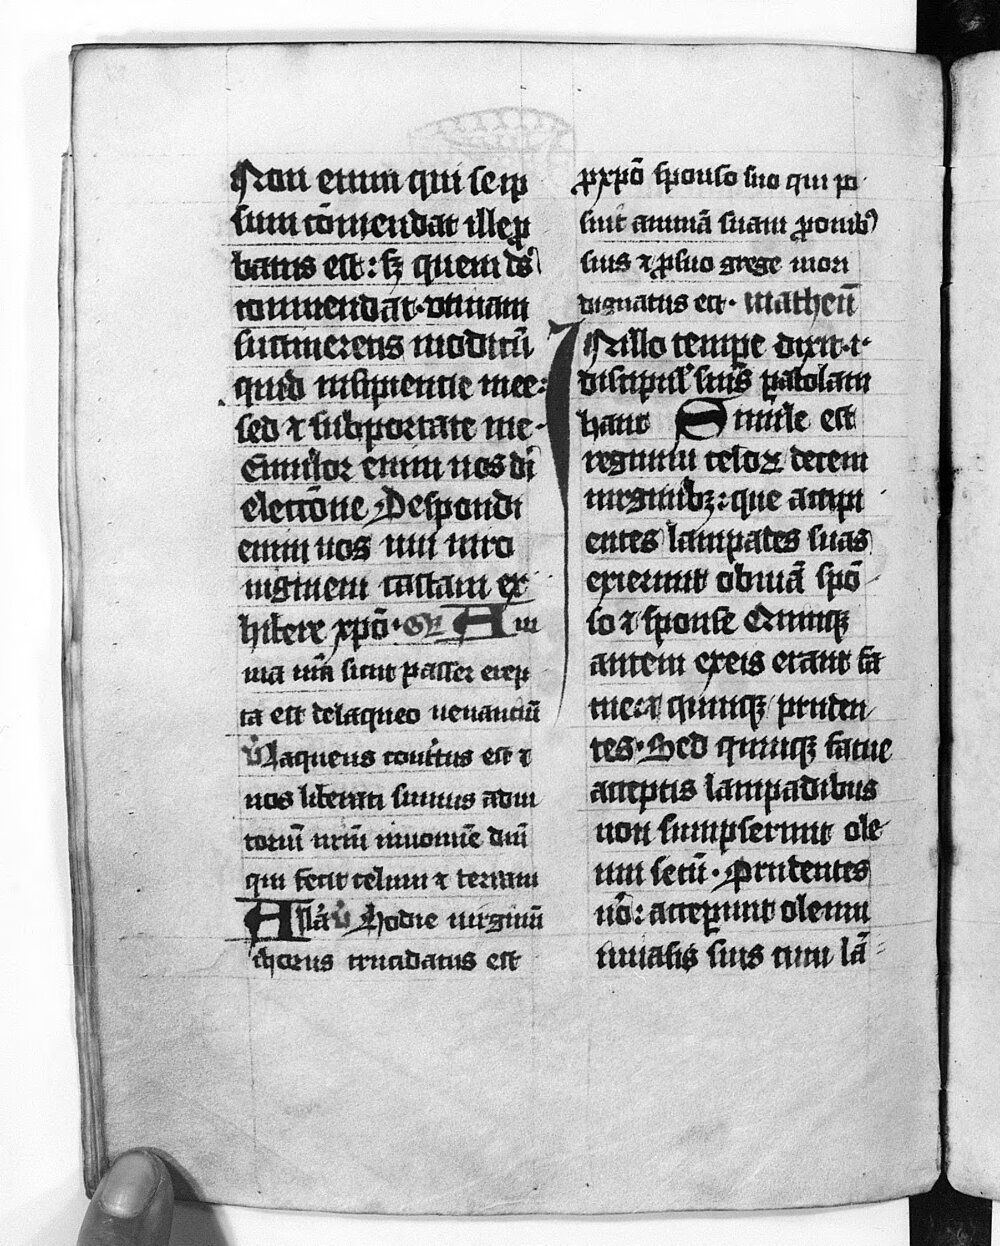 Non enim qui seip
sum cōmendat ille ꝓ
batus est: sꝫ quem ds̄
commendat. Utinam
sustineretis modicū
quid insipientie mee:
sed ⁊ subportate me.
Emulor enim uos di
electōne Despondi
enim uos uni uiro
uirginem castam ex
hibere xp̄o. Gͬ Ani
ma nr̄a sicut passer erep
ta est delaqueo uenantiū
v̄ Laqueus contͥtus est ⁊
nos liberati sumus adiu
toriū nrm̄ innomīe dn̄i
qui fecit celum ⁊ terram
Allā v̄ Hodie uirginū
chorus trucidatus est
ꝓxp̄o sponso suo qui po
suit animā suam ꝓouibꝰ
suis ⁊ ꝓsuo grege mori
dignatus est. matheū
In illo tempe dixit. i.
discipul' suis pabolam
hanc Simile est
regnum celoꝝ decem
uirginibꝫ: que accipi
entes lampades suas
exierunt obuiā spō
so ⁊ sponse Quinqꝫ
autem exeis erant fa
tue: ⁊ quinqꝫ pruden
tes. Sed quinqꝫ fatue
acceptis lampadibus
non sumpserunt ole
um secū. Prudentes
uō: acceperunt oleum
inuasis suis cum lā